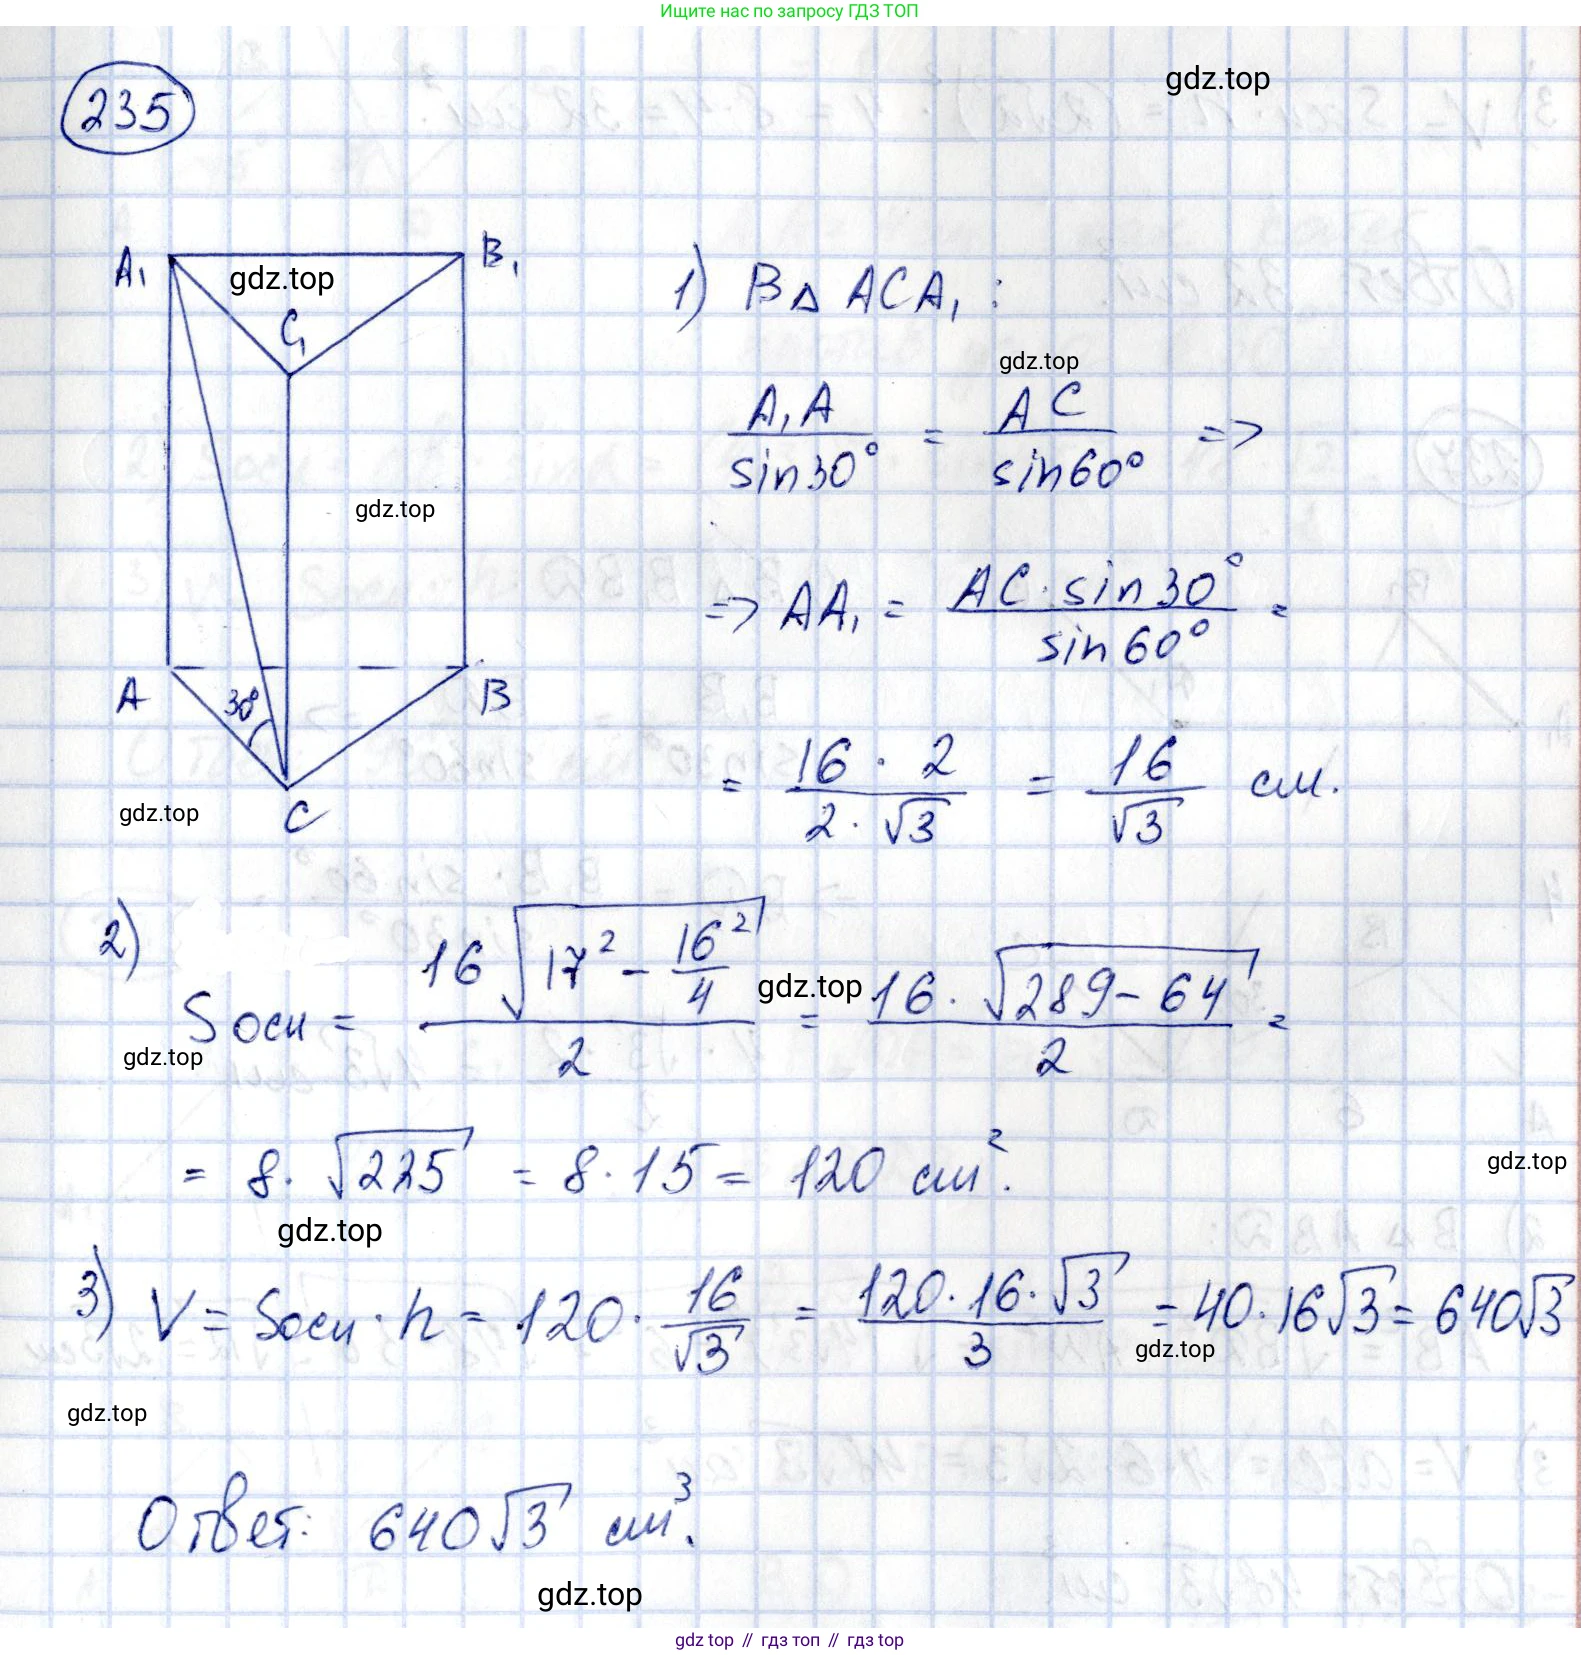 Ищите нас по запросу ГДЗ ТОП
gdz.top
235
A₁ B₁
gdz.top
C₁
gdz.top
A 30° B
gdz.top
C
1) В △ ACA₁ :
gdz.top
A₁A / sin30° = AC / sin60° =>
=> AA₁ = AC · sin30° / sin60° =
= 16 · 2 / 2 · √3 = 16 / √3 см.
2) Sосн = 16 √(17² - 16²/4) / 2 = 16 · √(289 - 64) / 2 =
gdz.top
gdz.top
= 8 · √225 = 8 · 15 = 120 см².
gdz.top
gdz.top
3) V = Sосн · h = 120 · 16/√3 = 120 · 16 · √3 / 3 = 40 · 16√3 = 640√3
gdz.top
gdz.top
Ответ: 640√3 см³.
gdz.top
gdz top // гдз топ // гдз top